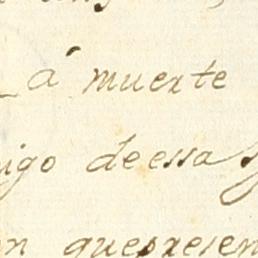 á muerte
igo deessa
n quepresen